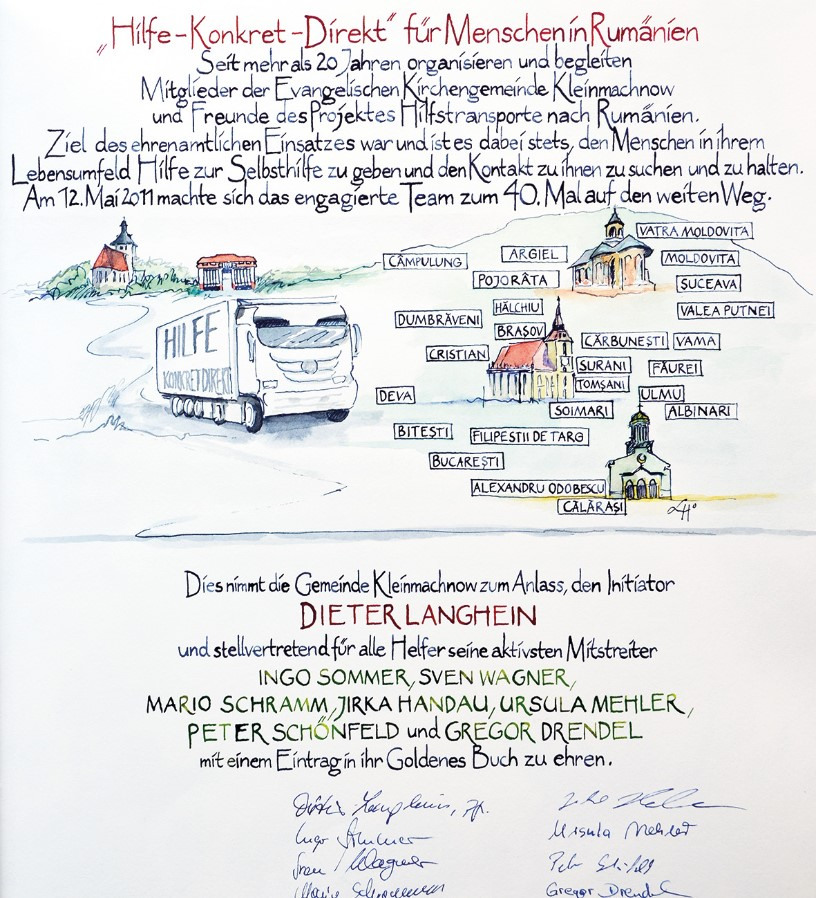 „Hilfe-Konkret-Direkt" für Menschen in Rumänien
Seit mehr als 20 Jahren organisieren und begleiten
Mitglieder der Evangelischen Kirchengemeinde Kleinmachnow
und Freunde des Projektes Hilfstransporte nach Rumänien.
Ziel des ehrenamtlichen Einsatzes war und ist es dabei stets, den Menschen in ihrem
Lebensumfeld Hilfe zur Selbsthilfe zu geben und den Kontakt zu ihnen zu suchen und zu halten.
Am 12. Mai 2011 machte sich das engagierte Team zum 40. Mal auf den weiten Weg.
VATRA MOLDOVITA
ARGIEL
CÂMPULUNG
MOLDOVITA
POJORÂTA
SUCEAVA
HĂLCHIU
VALEA PUTNEI
DUMBRĂVENI
BRAȘOV
HILFE
KONKRET DIREKT
CĂRBUNEȘTI
VAMA
CRISTIAN
SURANI
FĂUREI
TOMȘANI
DEVA
ULMU
SOIMARI
ALBINARI
BITEȘTI
FILIPESTII DE TARG
BUCAREȘTI
ALEXANDRU ODOBESCU
CĂLĂRAȘI
Dies nimmt die Gemeinde Kleinmachnow zum Anlass, den Initiator
DIETER LANGHEIN
und stellvertretend für alle Helfer seine aktivsten Mitstreiter
INGO SOMMER, SVEN WAGNER,
MARIO SCHRAMM, JIRKA HANDAU, URSULA MEHLER,
PETER SCHÖNFELD und GREGOR DRENDEL
mit einem Eintrag in ihr Goldenes Buch zu ehren.
Ursula Mehler
Wagner
Gregor Drendel